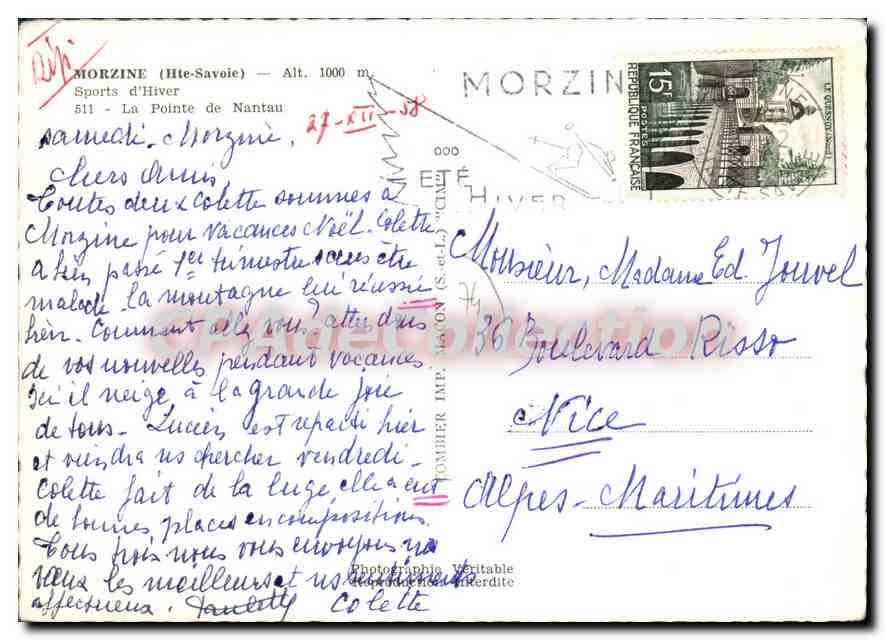 rép.
MORZINE (Hte-Savoie) — Alt. 1000 m.
Sports d'Hiver
511 - La Pointe de Nantau
27-XII-58
samedi - Morzine,
Chers Amis
Toutes deux Colette sommes à
Morzine pour vacances Noël. Colette
a bien passé 1er trimestre sans être
malade. la montagne lui réussie
bien. Comment allez vous?
de vos nouvelles pendant vacances
Ici il neige à la grande joie
de tous. Lucien est reparti hier
et viendra ns chercher vendredi.
Colette fait de la luge, elle a eut
de bonnes places en compositions.
Tous trois nous vous envoyons nos
vœux les meilleurs et ns sentiments
affectueux. Paulette Colette
COMBIER IMP. MACON (S.-et-L.) "CIM"
Photographie Véritable
Reproduction Interdite
MORZINE
ETÉ
HIVER
15F
REPUBLIQUE FRANÇAISE
POSTES
LE QUESNOY (Nord)
74
Monsieur, Madame Ed. Jouvel
36 Boulevard Risso
Nice
Alpes-Maritimes
CPA de Collection